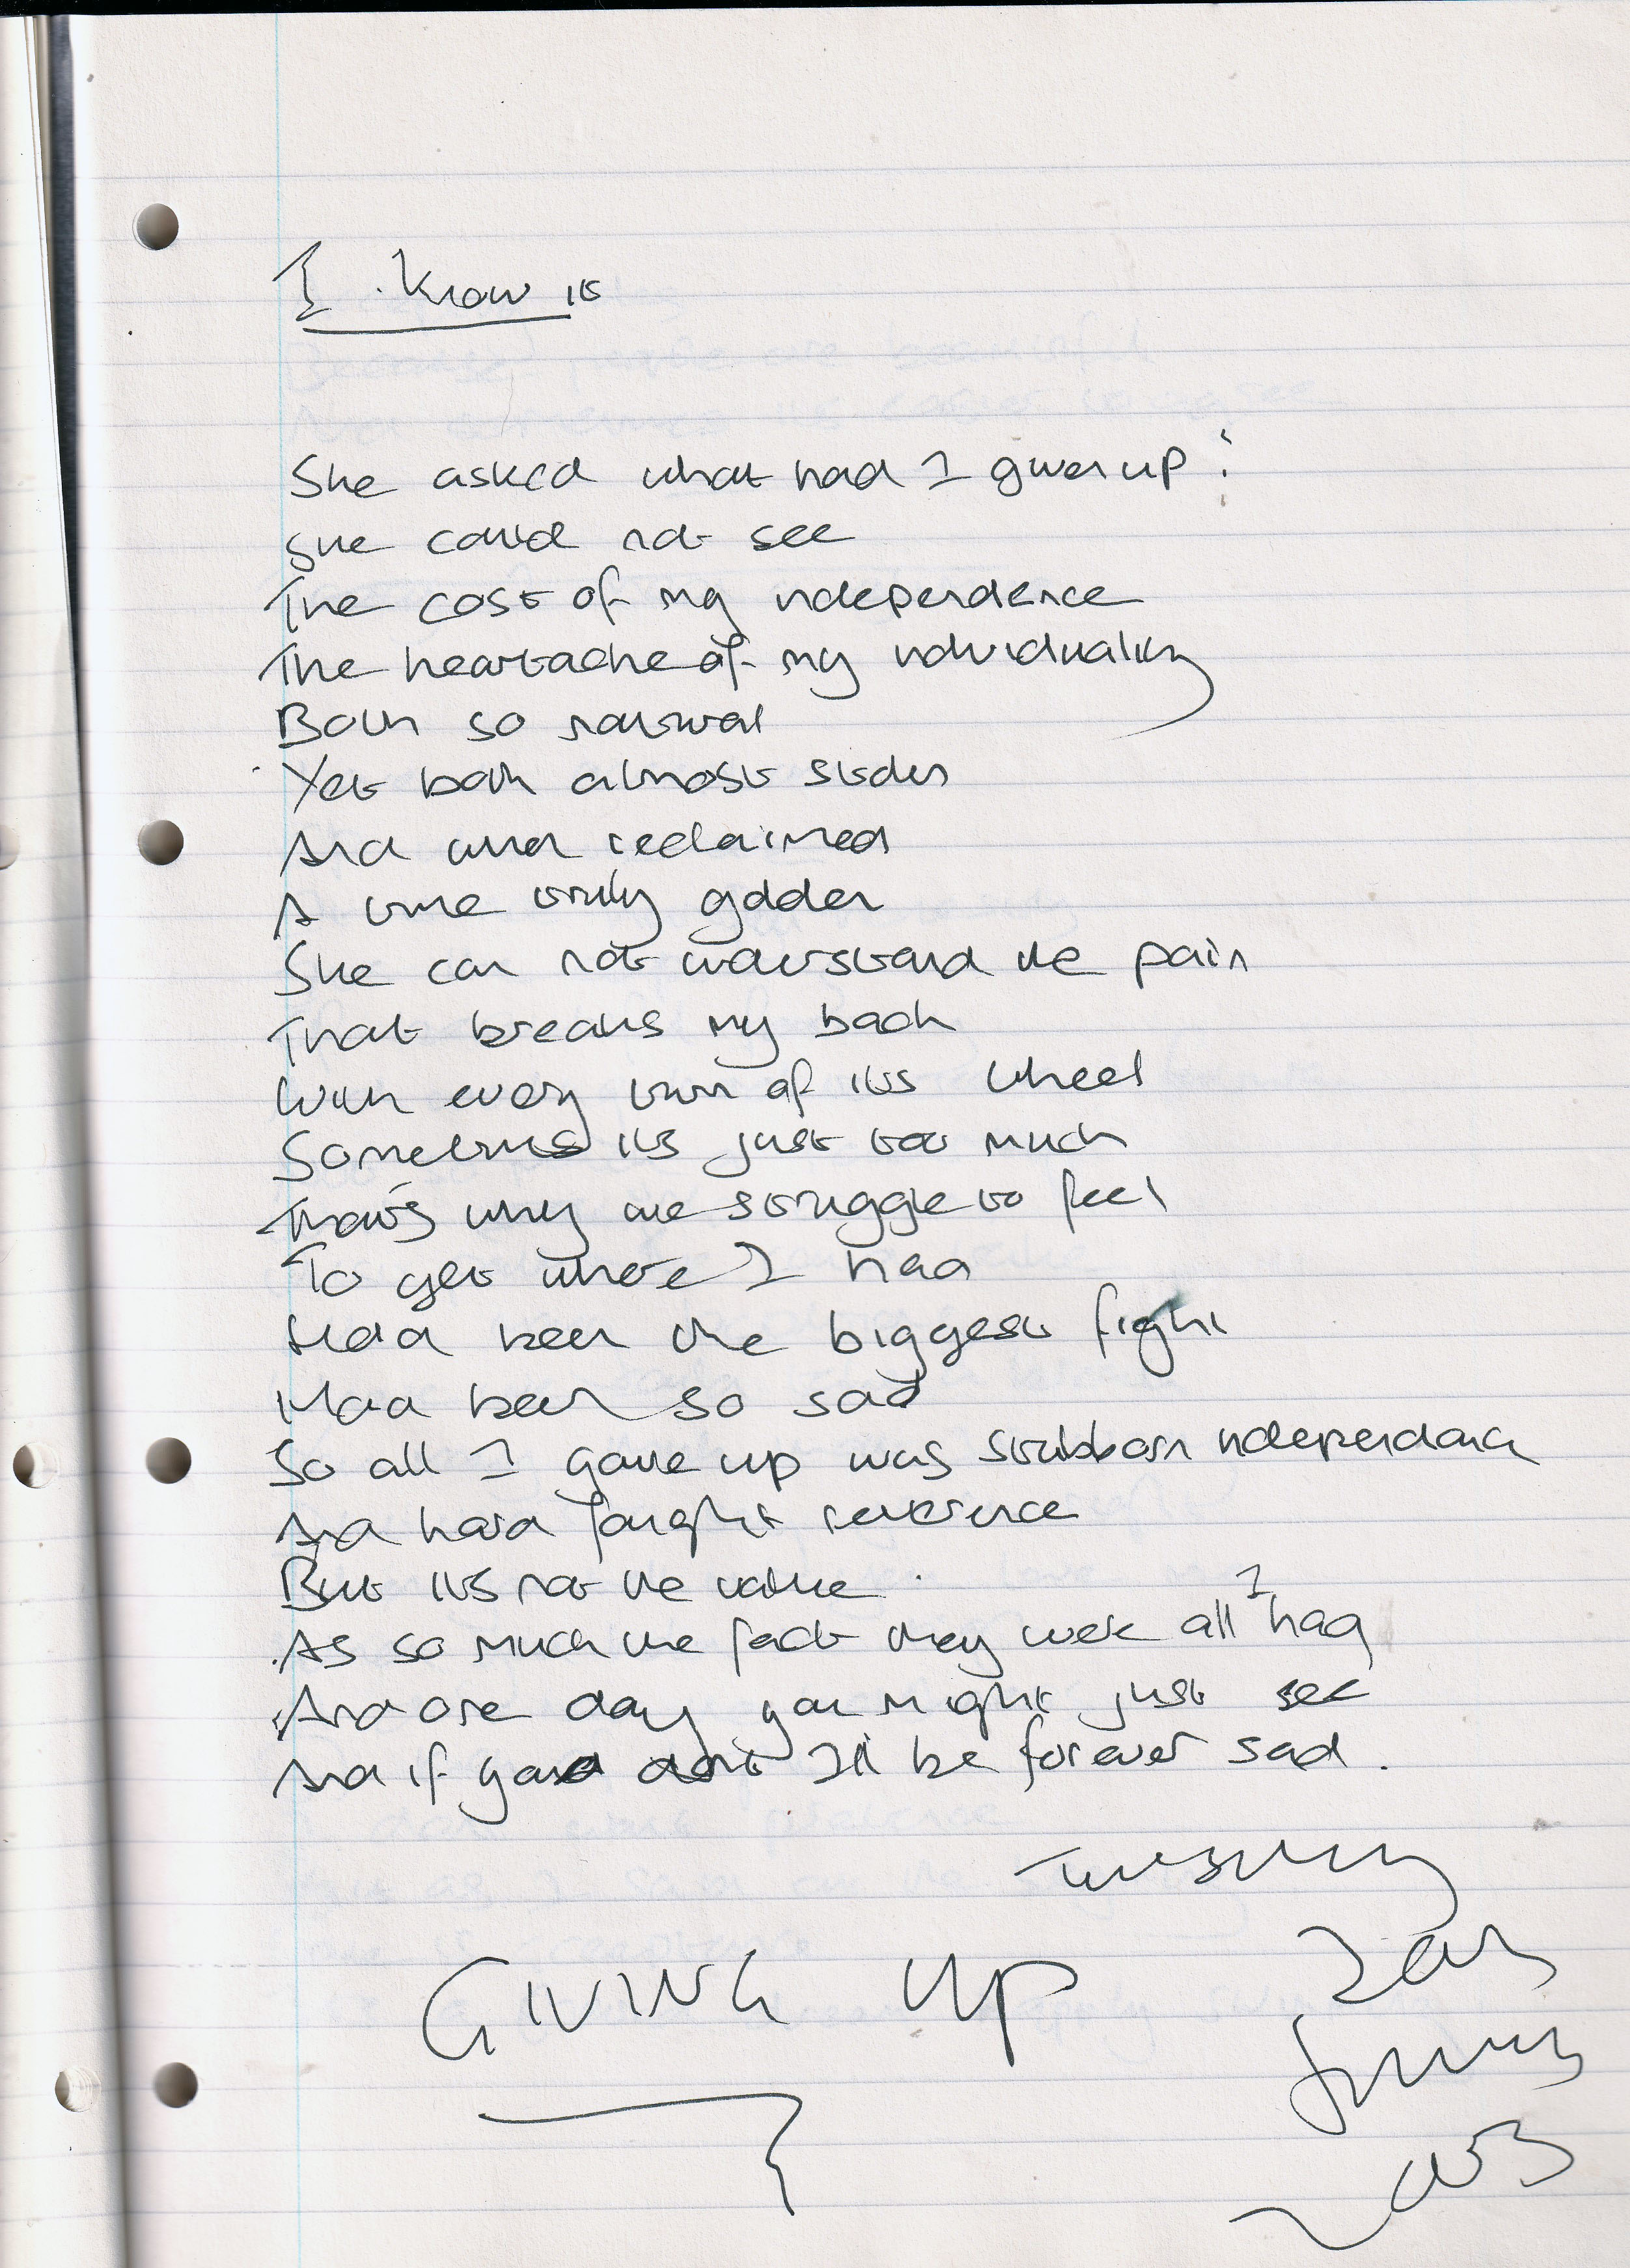 I know it
She asked what had I given up?
She could not see
The cost of my independence
The heartache of my individuality
Both so natural
Yet both almost stolen
And when reclaimed
A time truly golden
She can not understand the pain
That breaks my back
With every turn of its wheel
Sometimes its just too much
That's why we struggle to feel
To get where I had
Had been the biggest fight
Had been so sad
So all I gave up was stubborn independance
And hard fought reverence
But its not the value
As so much the fact they were all I had
And one day you might just see
And if you dont I'll be forever sad.
GIVING UP